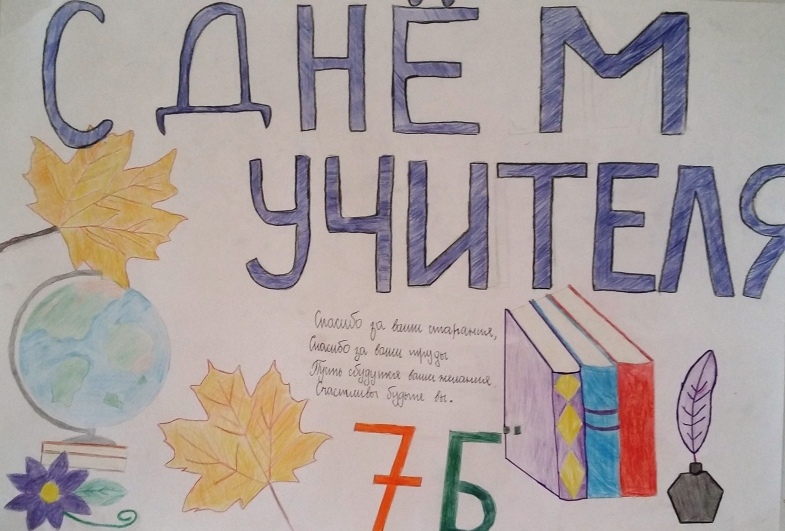 С ДНЁМ
УЧИТЕЛЯ
Спасибо за ваши старания,
Спасибо за ваши труды
Пусть сбудутся ваши желания
Счастливы будьте вы.
7Б